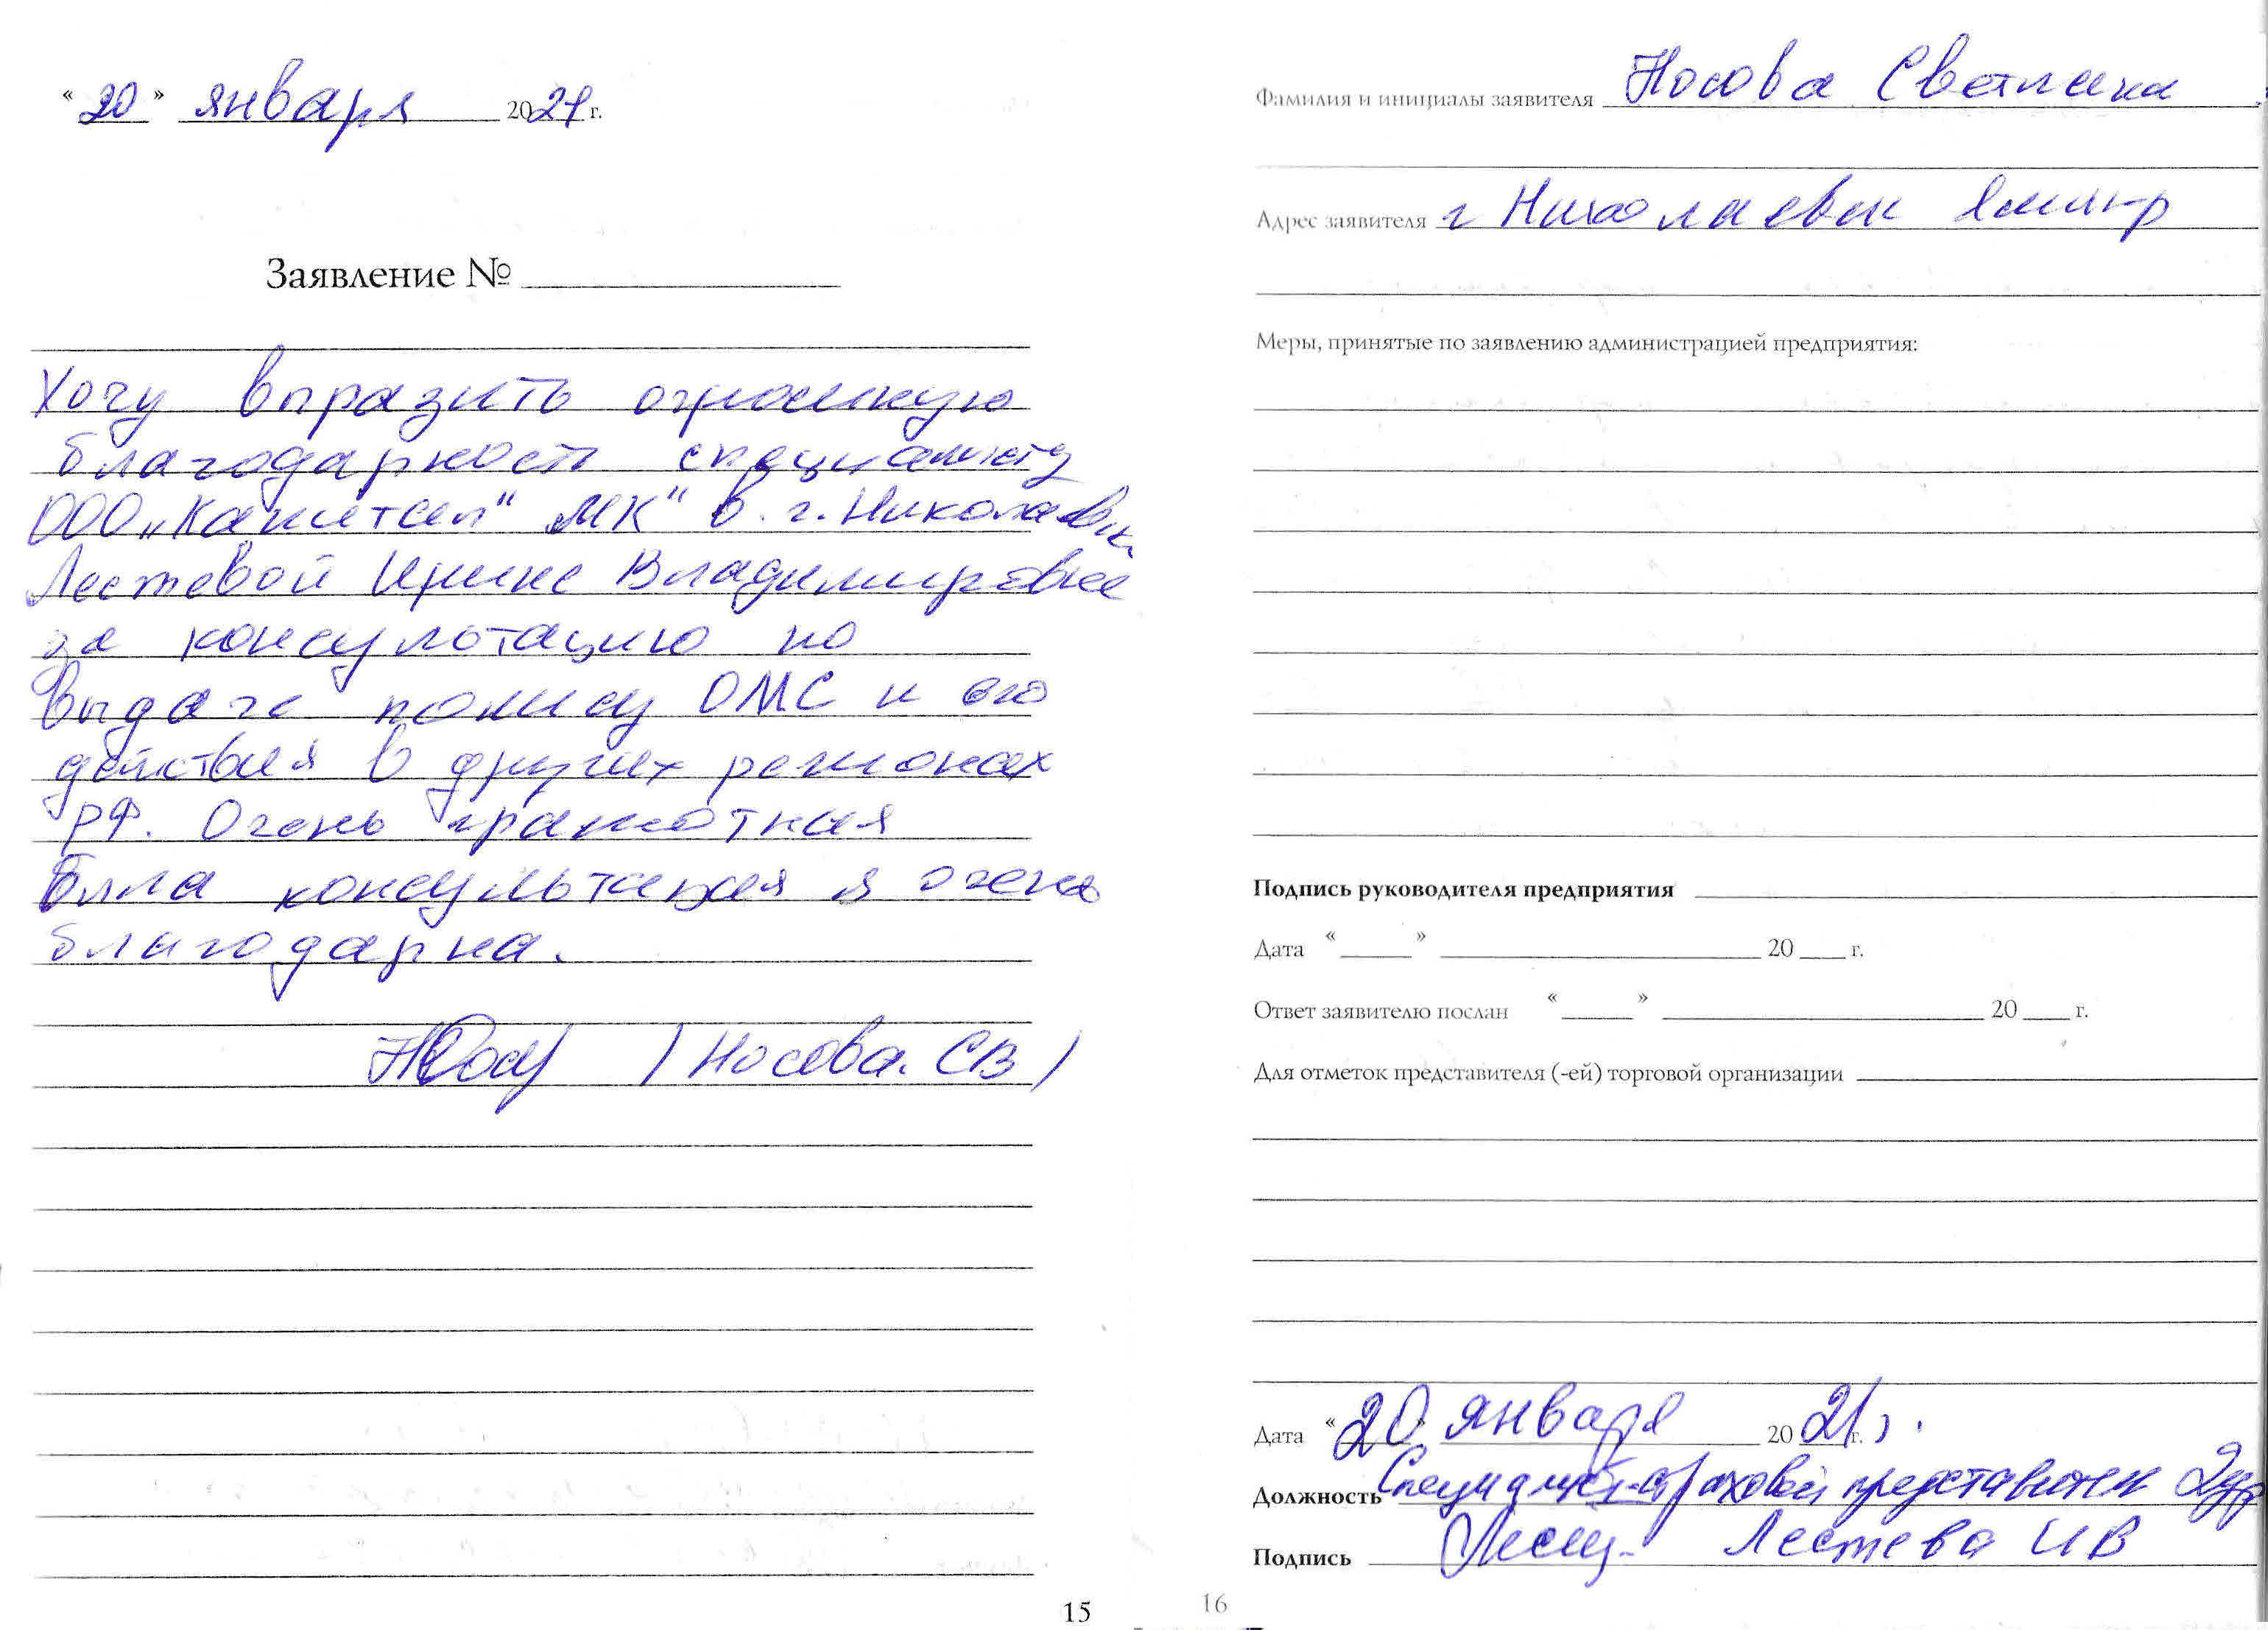 « 20 » января 2021 г.
Заявление №
Хочу выразить огромную
благодарность специалисту
ООО „Капитал" МК" в. г. Николаевк
Лестевой Ирине Владимировне
за консультацию по
выдаче полису ОМС и его
действия в других регионах
РФ. Очень грамотная
была консультация я очень
благодарна.
/ Носова. СВ /
15
Фамилия и инициалы заявителя Носова Светлана
Адрес заявителя г Николаевск
Меры, принятые по заявлению администрацией предприятия:
Подпись руководителя предприятия
Дата « » 20 г.
Ответ заявителю послан « » 20 г.
Для отметок представителя (-ей) торговой организации
Дата « 20 » января 20 21 г.
Должность Специалист-страховой представитель 2ур
Подпись Лестева ИВ
16